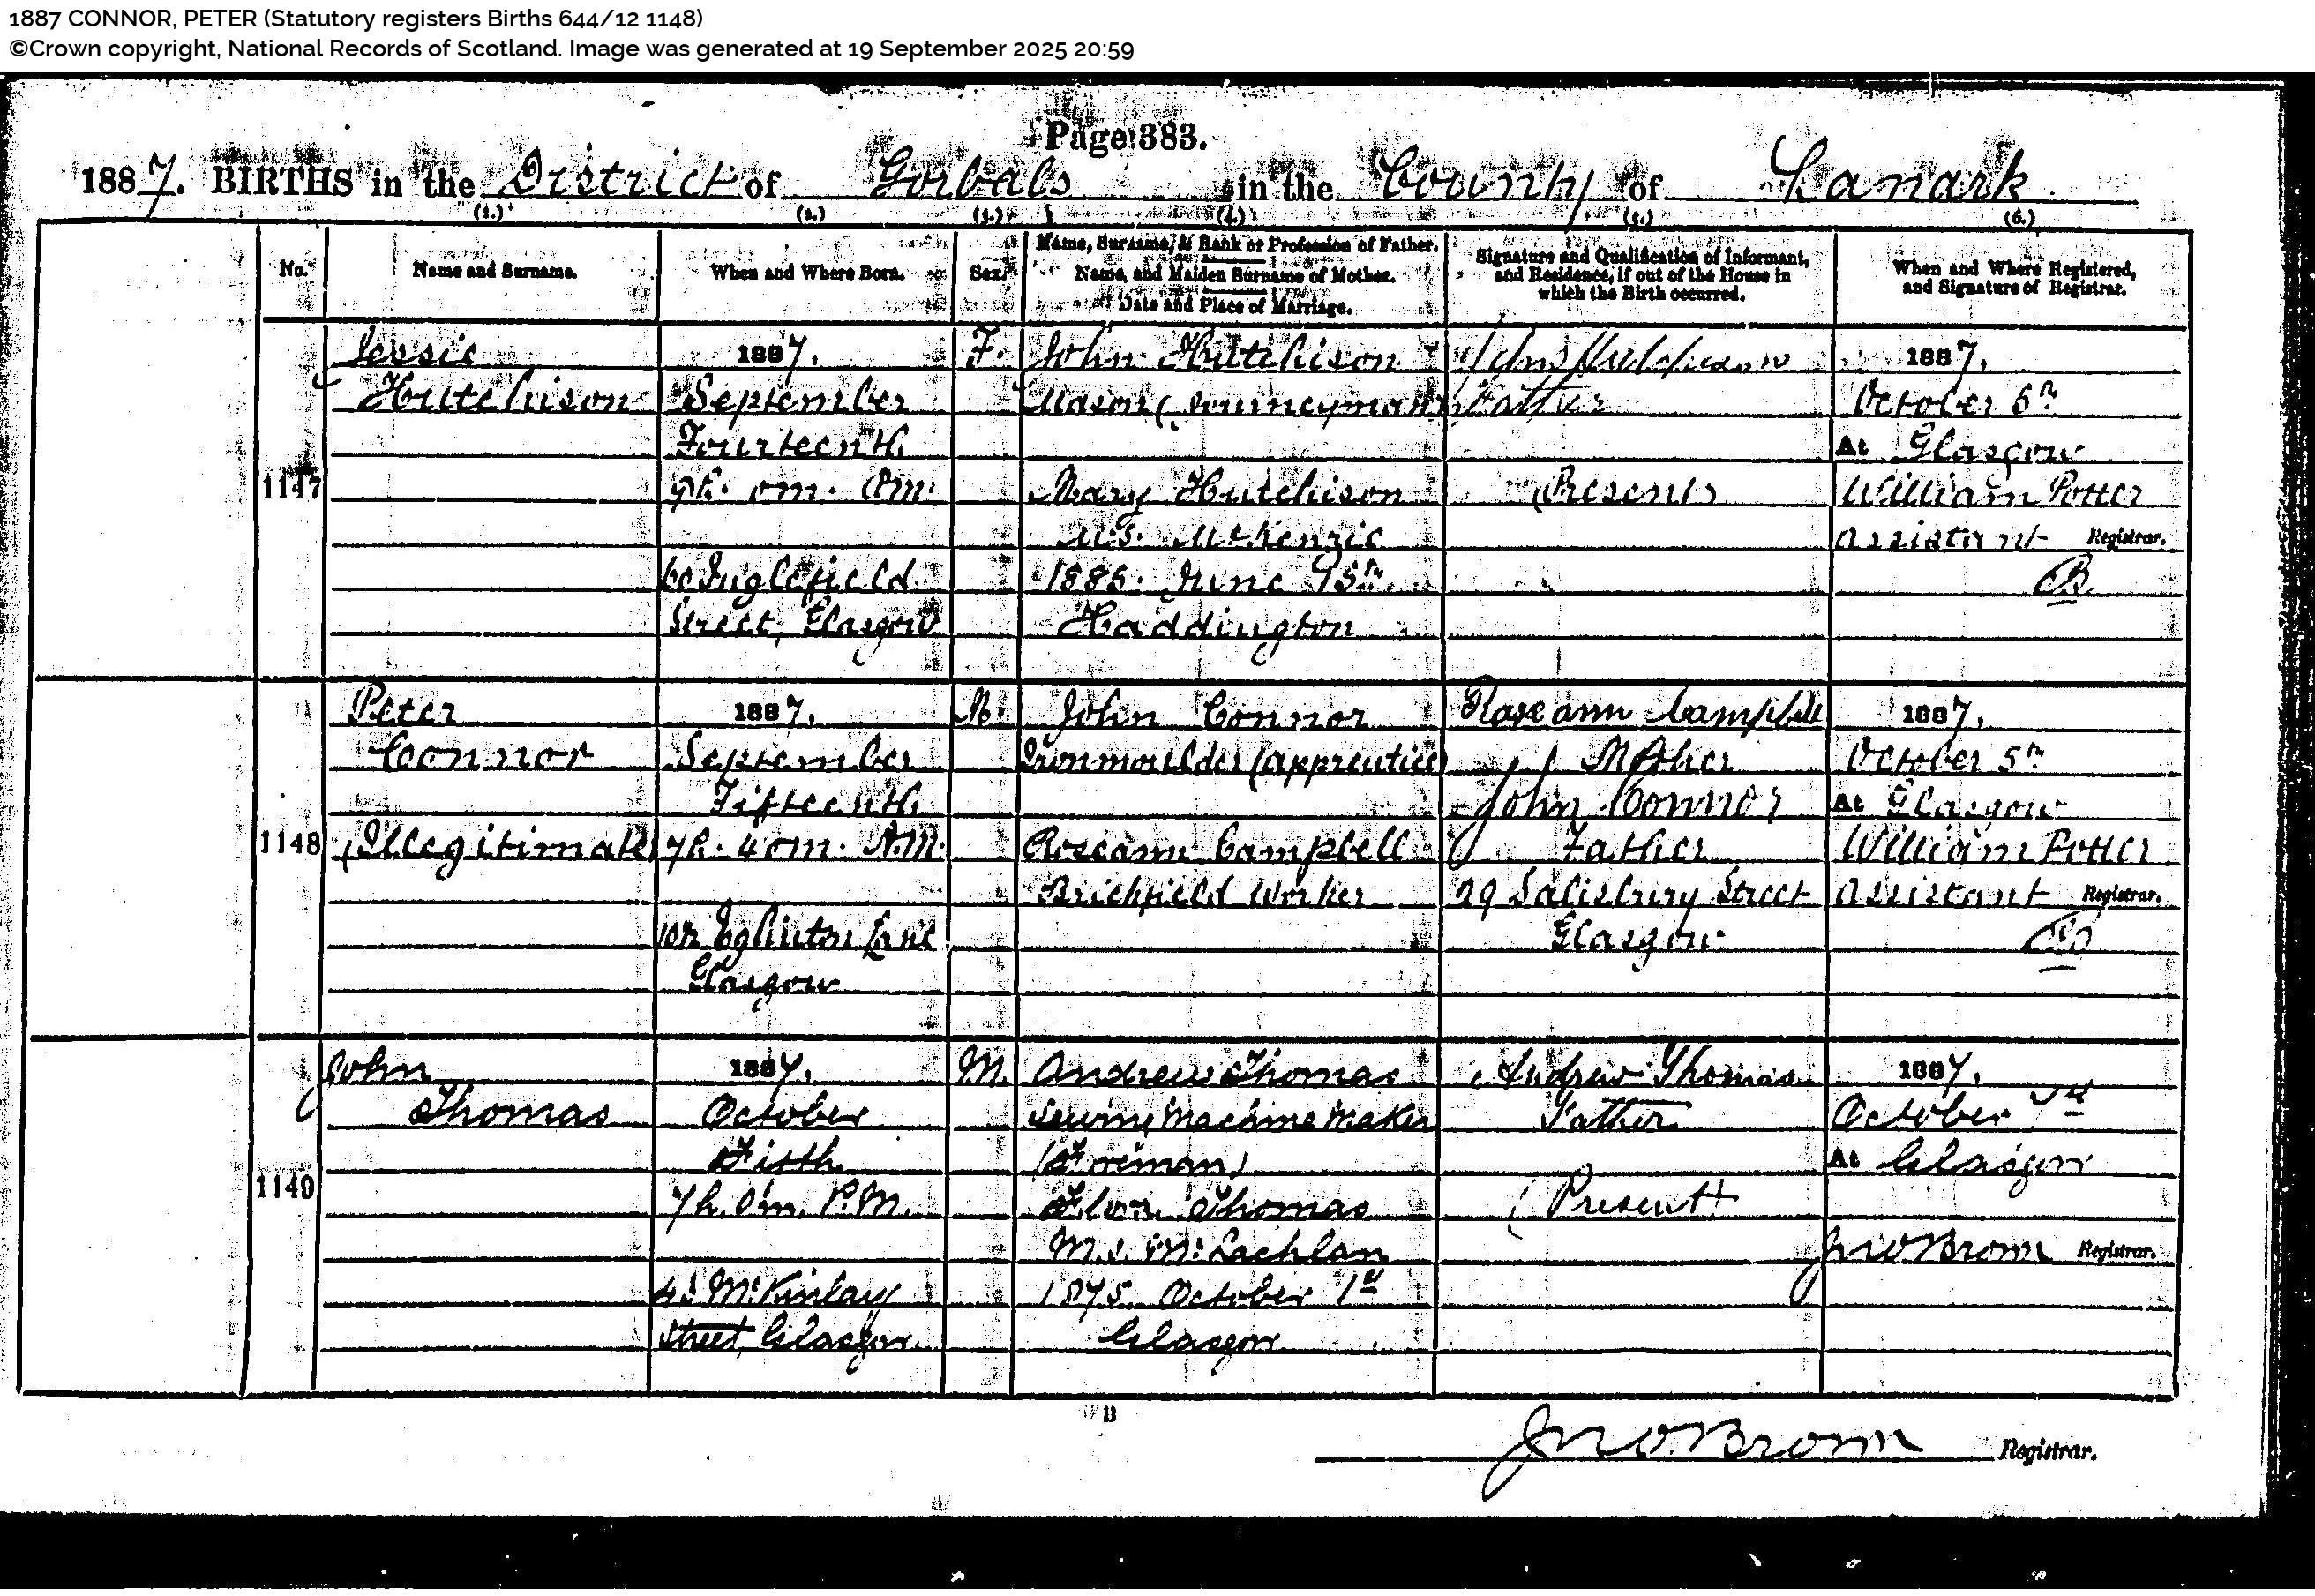 1887 CONNOR, PETER (Statutory registers Births 644/12 1148)
©Crown copyright, National Records of Scotland. Image was generated at 19 September 2025 20:59
Page 383.
1887. BIRTHS in the District of Gorbals in the County of Lanark
(1.) (2.) (3.) (4.) (5.) (6.)
No.
Name and Surname.
When and Where Born.
Sex.
Name, Surname, & Rank or Profession of Father.
Name, and Maiden Surname of Mother.
Date and Place of Marriage.
Signature and Qualification of Informant,
and Residence, if out of the House in
which the Birth occurred.
When and Where Registered,
and Signature of Registrar.
1147
Jessie
Hutchison
1887.
September
Fourteenth
60 Inglefield
Street, Glasgow
F.
John Hutchison
Mason (Journeyman)
Mary Hutchison
M.S. McKenzie
1885. June
Haddington
John Hutchison
Father
(Present)
1887.
October 5th
At Glasgow
William Potter
Assistant Registrar.
1148
Peter
Connor
(Illegitimate)
1887.
September
Fifteenth
7h. 40m. A.M.
Eglinton Lane
Glasgow
M.
John Connor
Ironmoulder (apprentice)
Roseann Campbell
Brickfield Worker
Roseann Campbell
Mother
John Connor
Father
29 Salisbury Street
Glasgow
1887.
October 5th
At Glasgow
William Potter
Assistant Registrar.
John
Thomas
1887.
October
7h. 0m. P.M.
McKinlay
Street, Glasgow
M.
Andrew Thomas
Sewing Machine Maker
(Foreman)
Flora Thomas
M.S. McLachlan
1875 October 1st
Glasgow
Andrew Thomas
Father
(Present)
1887.
October
At Glasgow
Jno Brown Registrar.
B
Jno Brown Registrar.